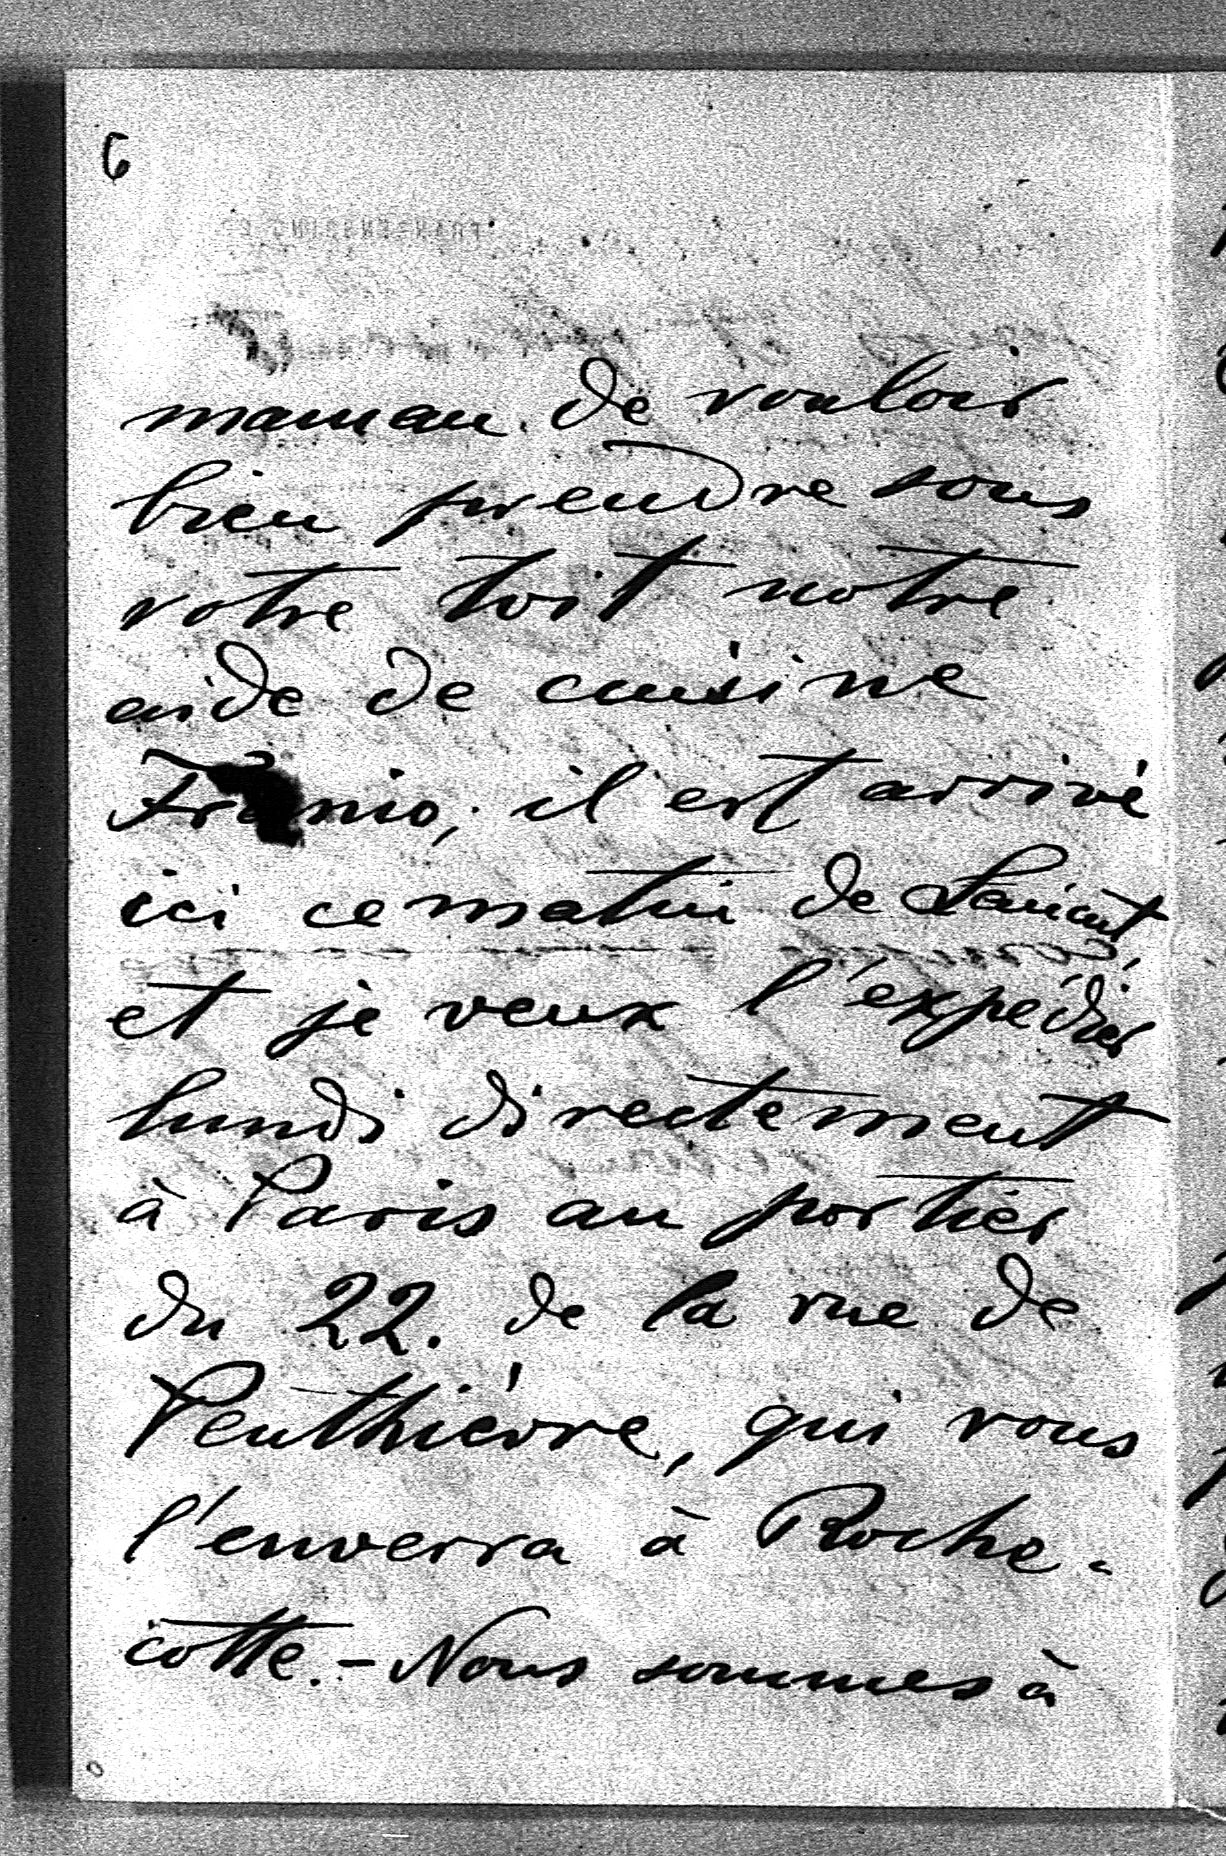 6
maman de vouloir
bien prendre sous
votre toit notre
aide de cuisine
Franio, il est arrivé
ici ce matin de Lancut
et je veux l'expédier
lundi directement
à Paris au portier
du 22. de la rue de
Penthièvre, qui vous
l'enverra à Roche-
cotte. - Nous sommes à